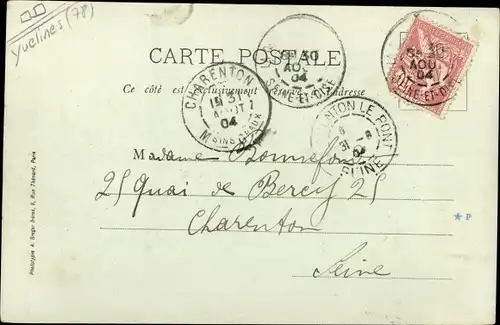 Yvelines (78)
CARTE POSTALE
Ce côté est exclusivement réservé à l'adresse
CHARENTON
19 31
AOUT
04
MAGASINS GÉNÉRAUX
30
AOU
04
SEINE-ET-OISE
30
AOU
04
SEINE-ET-OISE
NTON LE PONT
31 -8
04
SEINE
Madame Bonnefont
25 Quai de Bercy 25
Charenton
Seine
* P
Phototypie A. Breger frères, 9, Rue Thénard, Paris